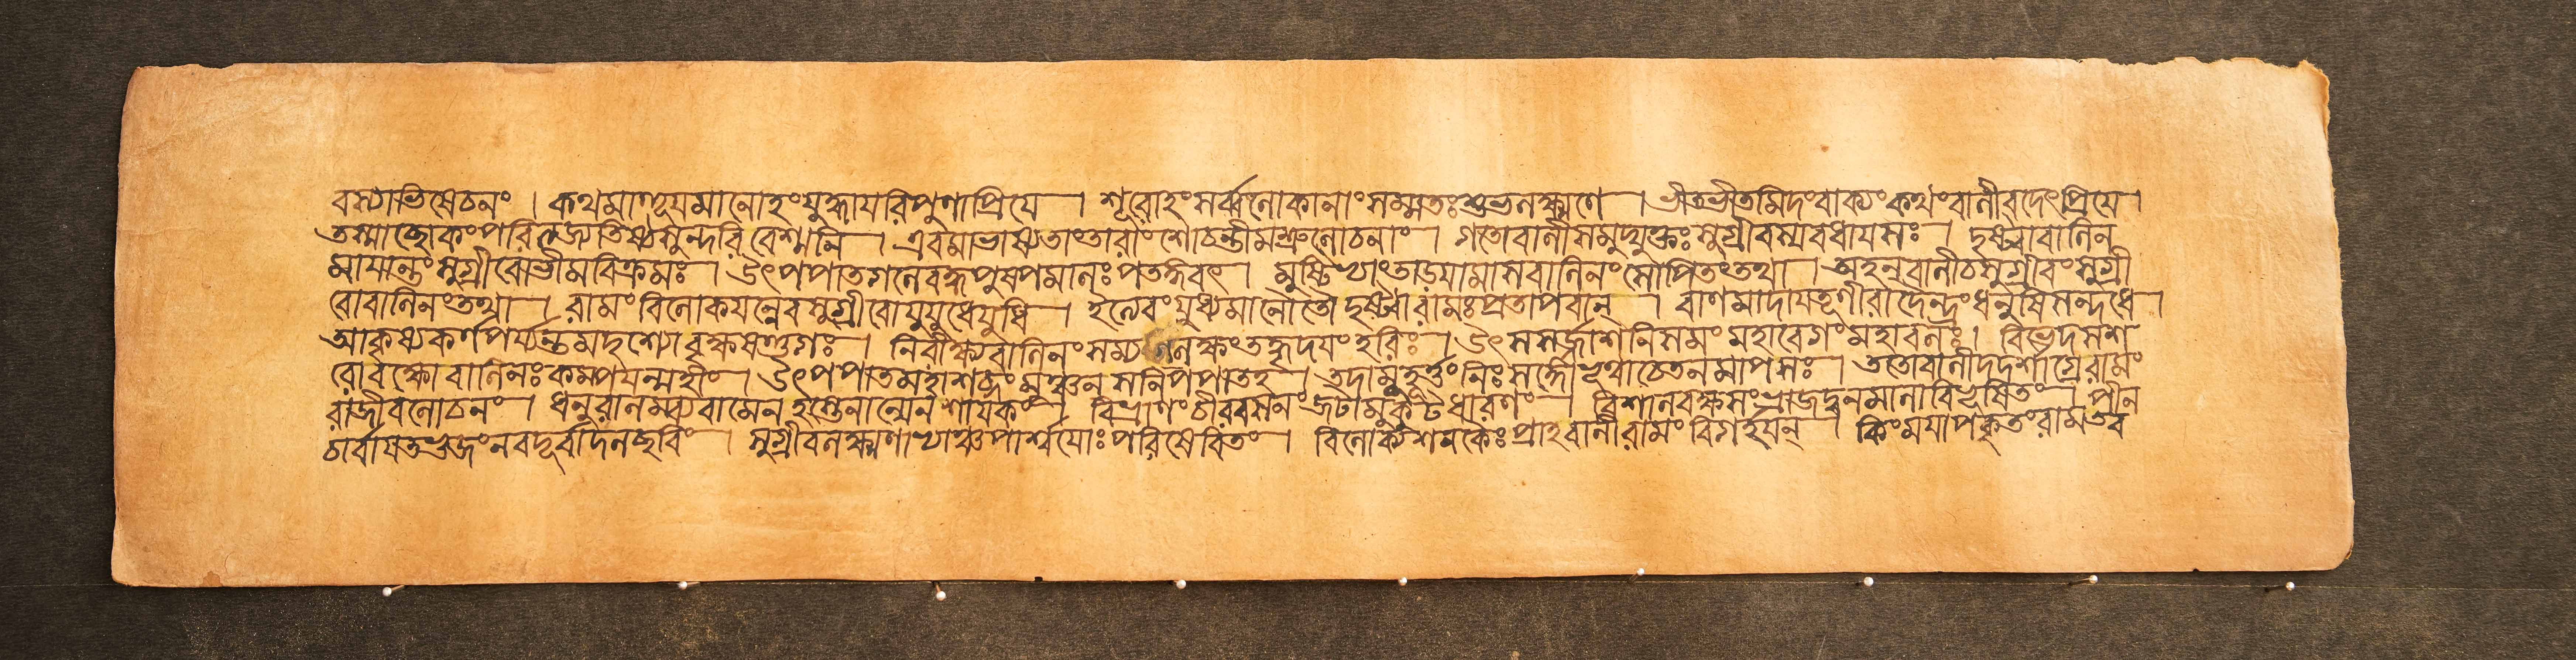 বস্যাভিষেচনং । কথমাহূয়মানোহংযুদ্ধায়রিপুণাপ্রিয়ে । শূরোহংসর্ব্বলোকানাংসম্মতঃশুভলক্ষ্মণে । ভীতভীতমিদংবাক্যংকথংবালীবদেৎপ্রিয়ে ।
তস্মাচ্ছোকংপরিত্যজ্যতিষ্ঠসুন্দরিবেশ্মনি । এবমাভাষ্যতাংতারাংশোচন্তীমশ্রুলোচনাং । গতোবালীসমুদ্যুক্তঃসুগ্রীবস্যবধায়সঃ । দৃষ্ট্বাবালিন
মায়ান্তংসুগ্রীবোভীমবিক্রমঃ । উৎপপাতগলেবদ্ধপুষ্পমালঃপতঙ্গবৎ । মুষ্টিভ্যাংতাড়য়ামাসবালিনংসোপিতংতথা । অহন্বালীচসুগ্রীবংসুগ্রী
বোবালিনংতথা । রামংবিলোকয়ন্নেবসুগ্রীবোযুযুধেযুধি । ইত্যেবংযুধ্যমানৌতৌদৃষ্ট্বারামঃপ্রতাপবান্ । বাণমাদায়তূণীরাদৈন্দ্রংধনুষিসন্দধে ।
আকৃষ্যকর্ণপর্য্যন্তমদৃশ্যোবৃক্ষষণ্ডগঃ । নিরীক্ষ্যবালিনংসম্যগ্লক্ষংতদ্ধৃদয়ংহরিঃ । উৎসসর্জ্জাশনিসমংমহাবেগংমহাবলঃ । বিভেদসশ
রোবক্ষোবালিনঃকম্পয়ন্মহীং । উৎপপাতমহাশব্দংমুঞ্চনসনিপপাতহ । তদামুহূর্ত্তংনিঃসংজ্ঞোভূত্বাচেতনমাপসঃ । ততোবালীদদর্শাগ্রেরামং
রাজীবলোচনং । ধনুরালম্ব্যবামেনহস্তেনান্যেনশায়কং । বিভ্রাণংচীরবসনংজটামুকুটধারিণং । বিশালবক্ষসংভ্রাজদ্বনমালাবিভূষিতং । পীন
চার্ব্বায়তভুজংনবদূর্ব্বাদলচ্ছবিং । সুগ্রীবলক্ষ্মণাভ্যাঞ্চপার্শ্বয়োঃপরিষেবিতং । বিলোক্যশনকৈঃপ্রাহবালীরামংবিগর্হয়ন্ । কিংময়াপকৃতংরামতব